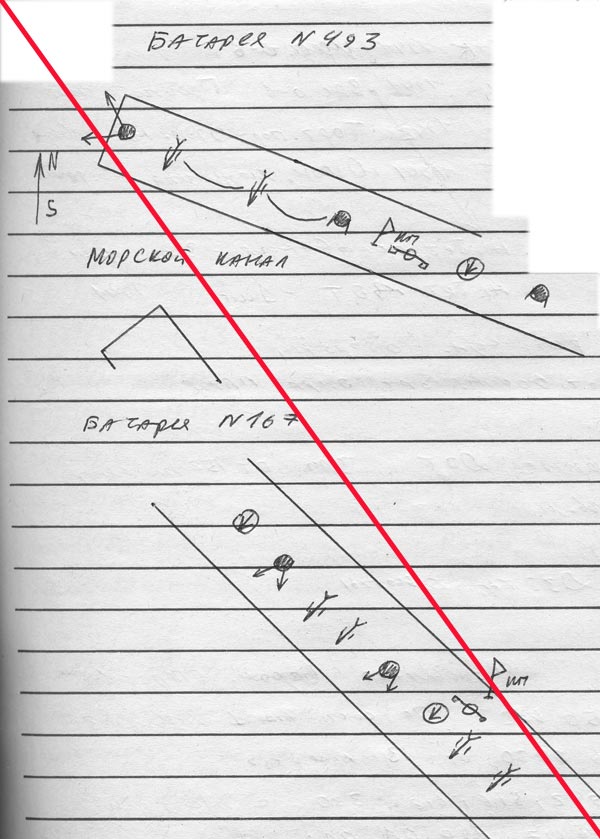 БАТАРЕЯ N 493
N
S
КП
МОРСКОЙ КАНАЛ
БАТАРЕЯ N 167
КП